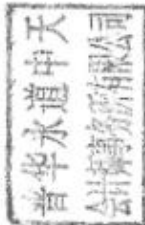 普华永道中天
会计师事务所有限公司